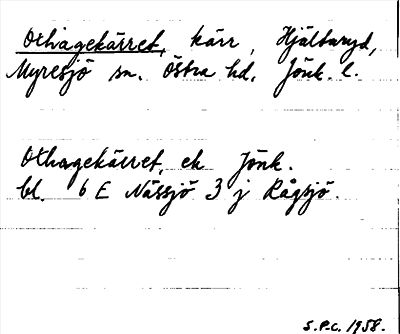 Othagekärret, kärr, Hjältaryd,
Myresjö sn. Östra hd. Jönk. l.
Othagekärret, ek Jönk.
bl. 6 E Nässjö 3 j Rågsjö.
S.P.C. 1958.